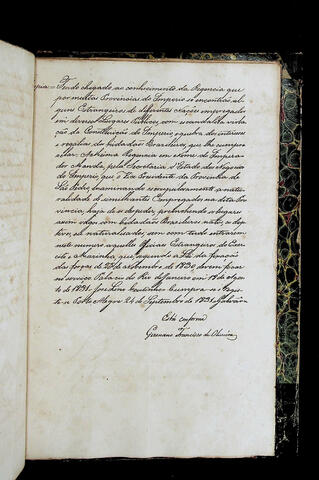 Copia = Tendo chegado ao conhecimento da Regencia que
por muitas Provincias do Imperio se encontrão al-
guns Estrangeiros de differentes Nações empregados
em diversos Lugares Publicos, com escandaloza viola-
ção da Constituição do Imperio, e quebra dos interesses
e regalias dos Cidadãos Brazileiros, que lhe cumpre
A mesma Regencia em Nome do Impera-
dor Manda, pela Secretaria d'Estado dos Negocios
do Imperio, que o Vice Presidente da Provincia de
São Pedro, examinando escrupulosamente a natu-
ralidade de semelhantes Empregados na dita Pro-
vincia, haja de os despedir, prehenchendo os lugares
assim vagos com Cidadãos Brazileiros natos, ou
naturalizados, sem com tudo entrarem
neste numero aquelles Officiaes Estrangeiros do Exer-
cito e Marinha, que segundo a Lei da fixação
das forças de 24 de Novembro de 1830 devem
no serviço. Palacio do Rio de Janeiro em 17 de Agos-
to de 1831. José Lino Coutinho. Cumpra-se e Regis-
te-se. Porto Alegre 24 de Septembro de 1831. Galvão
Está conforme
Germano Francisco de Oliveira